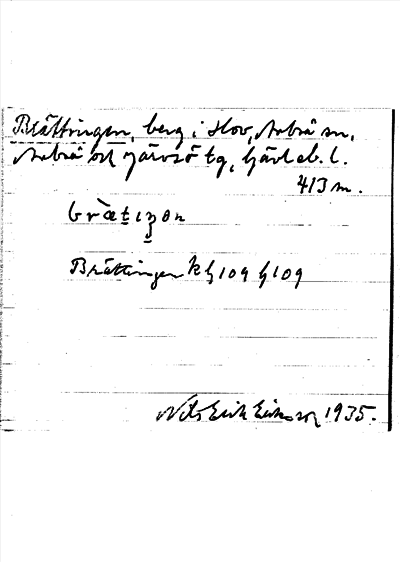 Brättringen, berg i skov, Arbrå sn,
Arbrå och Järvsö tg, Gävleb. l.
413 m.
bràetıŋən
Brättingen k G109 G109
Nils Erik Eriksson 1935.